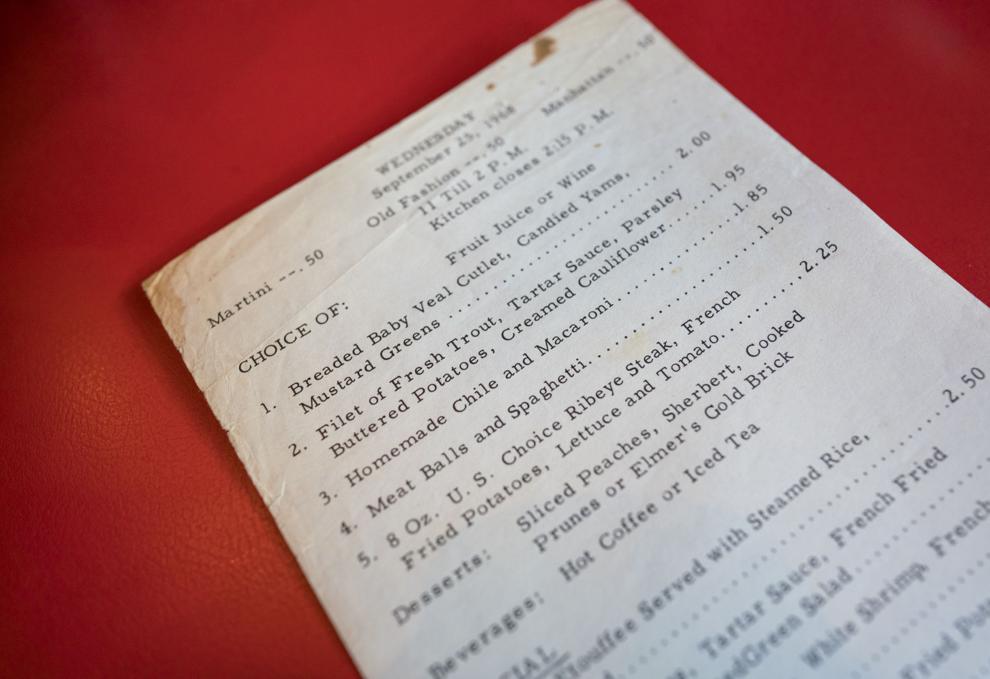 WEDNESDAY
September 25, 1968
Martini --.50 Old Fashion --.50 Manhattan --.50
11 Till 2 P.M.
Kitchen closes 2:15 P.M.
Fruit Juice or Wine
CHOICE OF:
1. Breaded Baby Veal Cutlet, Candied Yams,
Mustard Greens . . . . . . . . . . . . . . . . . . . . . . . . 2.00
2. Filet of Fresh Trout, Tartar Sauce, Parsley
Buttered Potatoes, Creamed Cauliflower. . . . . . 1.95
3. Homemade Chile and Macaroni. . . . . . . . . . . . . .1.85
4. Meat Balls and Spaghetti. . . . . . . . . . . . . . . . . . .1.50
5. 8 Oz. U.S. Choice Ribeye Steak, French
Fried Potatoes, Lettuce and Tomato. . . . . . . . .2.25
Desserts: Sliced Peaches, Sherbert, Cooked
Prunes or Elmer's Gold Brick
Beverages: Hot Coffee or Iced Tea
Served with Steamed Rice,
. . . . . . . . . . . . . . . . . . . . . . . . . .2.50
Tartar Sauce, French Fried
Green Salad . . . . . . . . . .
White Shrimp, French
Fried